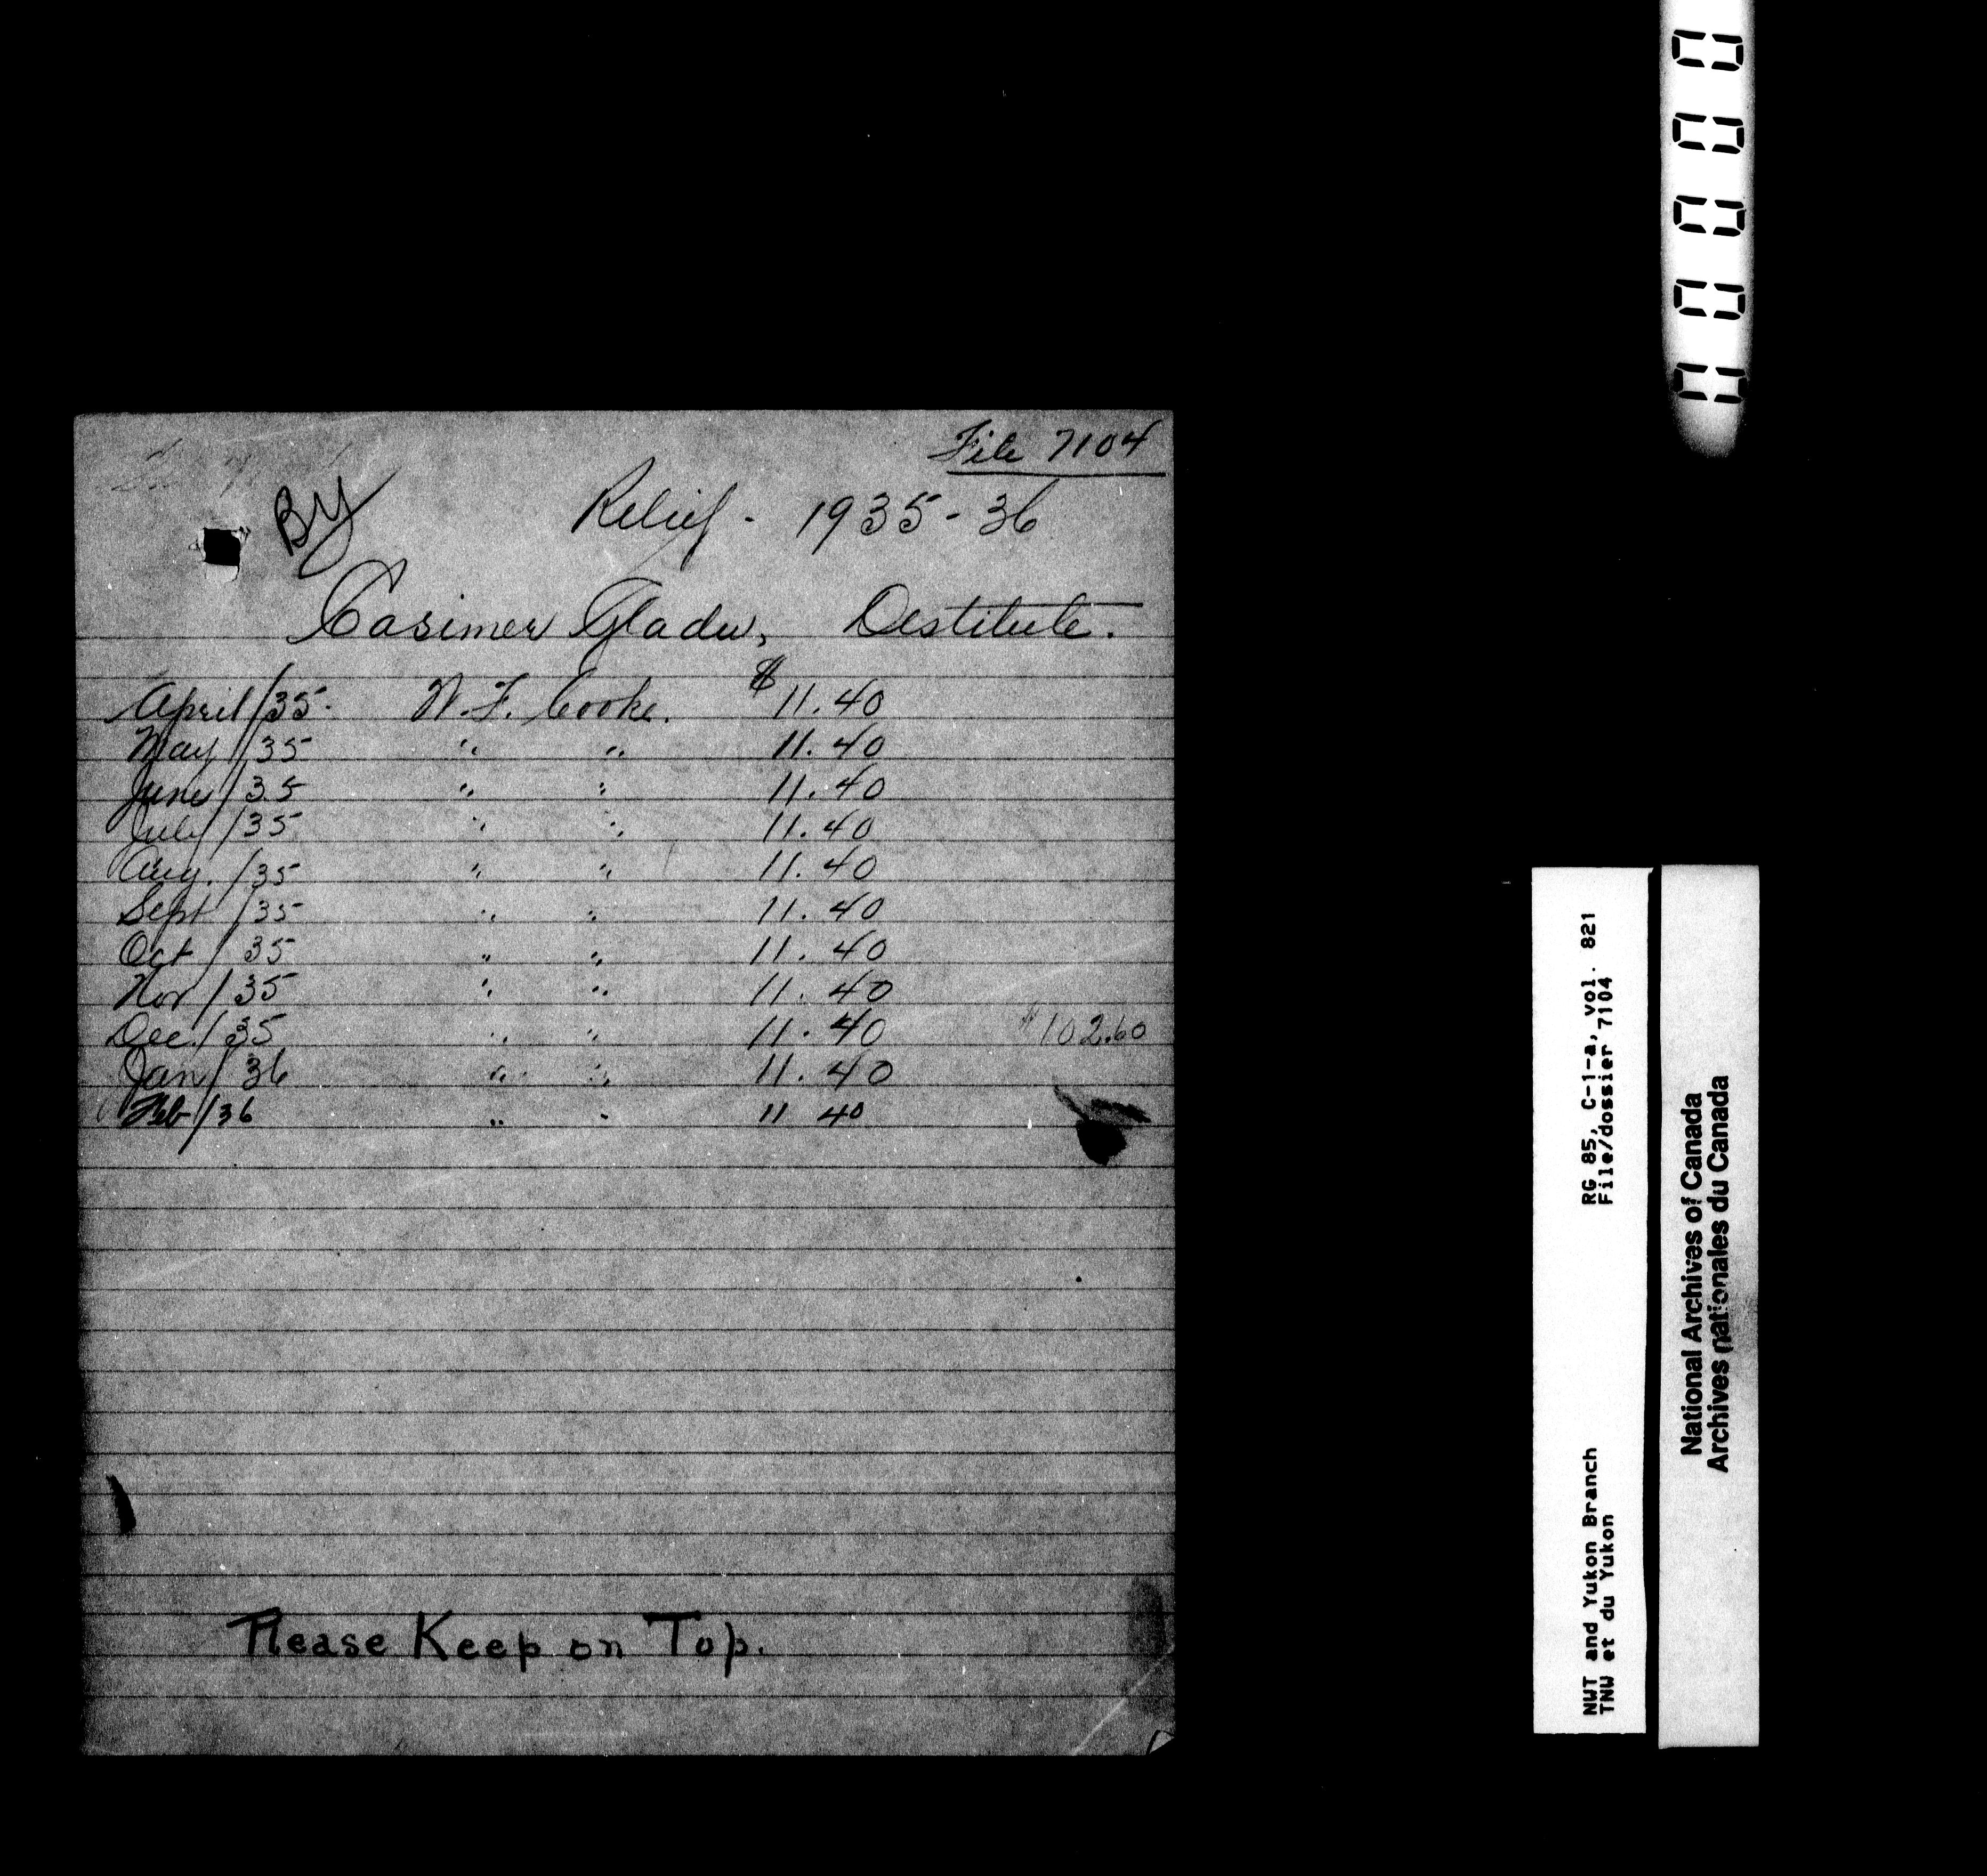 File 7104
By Relief - 1935-36
Casimer Gladu, Destitute.
April/35. W.F. Cooke. $11.40
May/35 " " 11.40
June/35 " " 11.40
July/35 " " 11.40
Aug./35 " " 11.40
Sept/35 " " 11.40
Oct/35 " " 11.40
Nov/35 " " 11.40
Dec./35 " " 11.40 $102.60
Jan/36 " " 11.40
Feb/36 " " 11 40
Please Keep on Top.
RG 85, C-1-a, vol. 821
File/dossier 7104
NWT and Yukon Branch
TNW et du Yukon
National Archives of Canada
Archives nationales du Canada